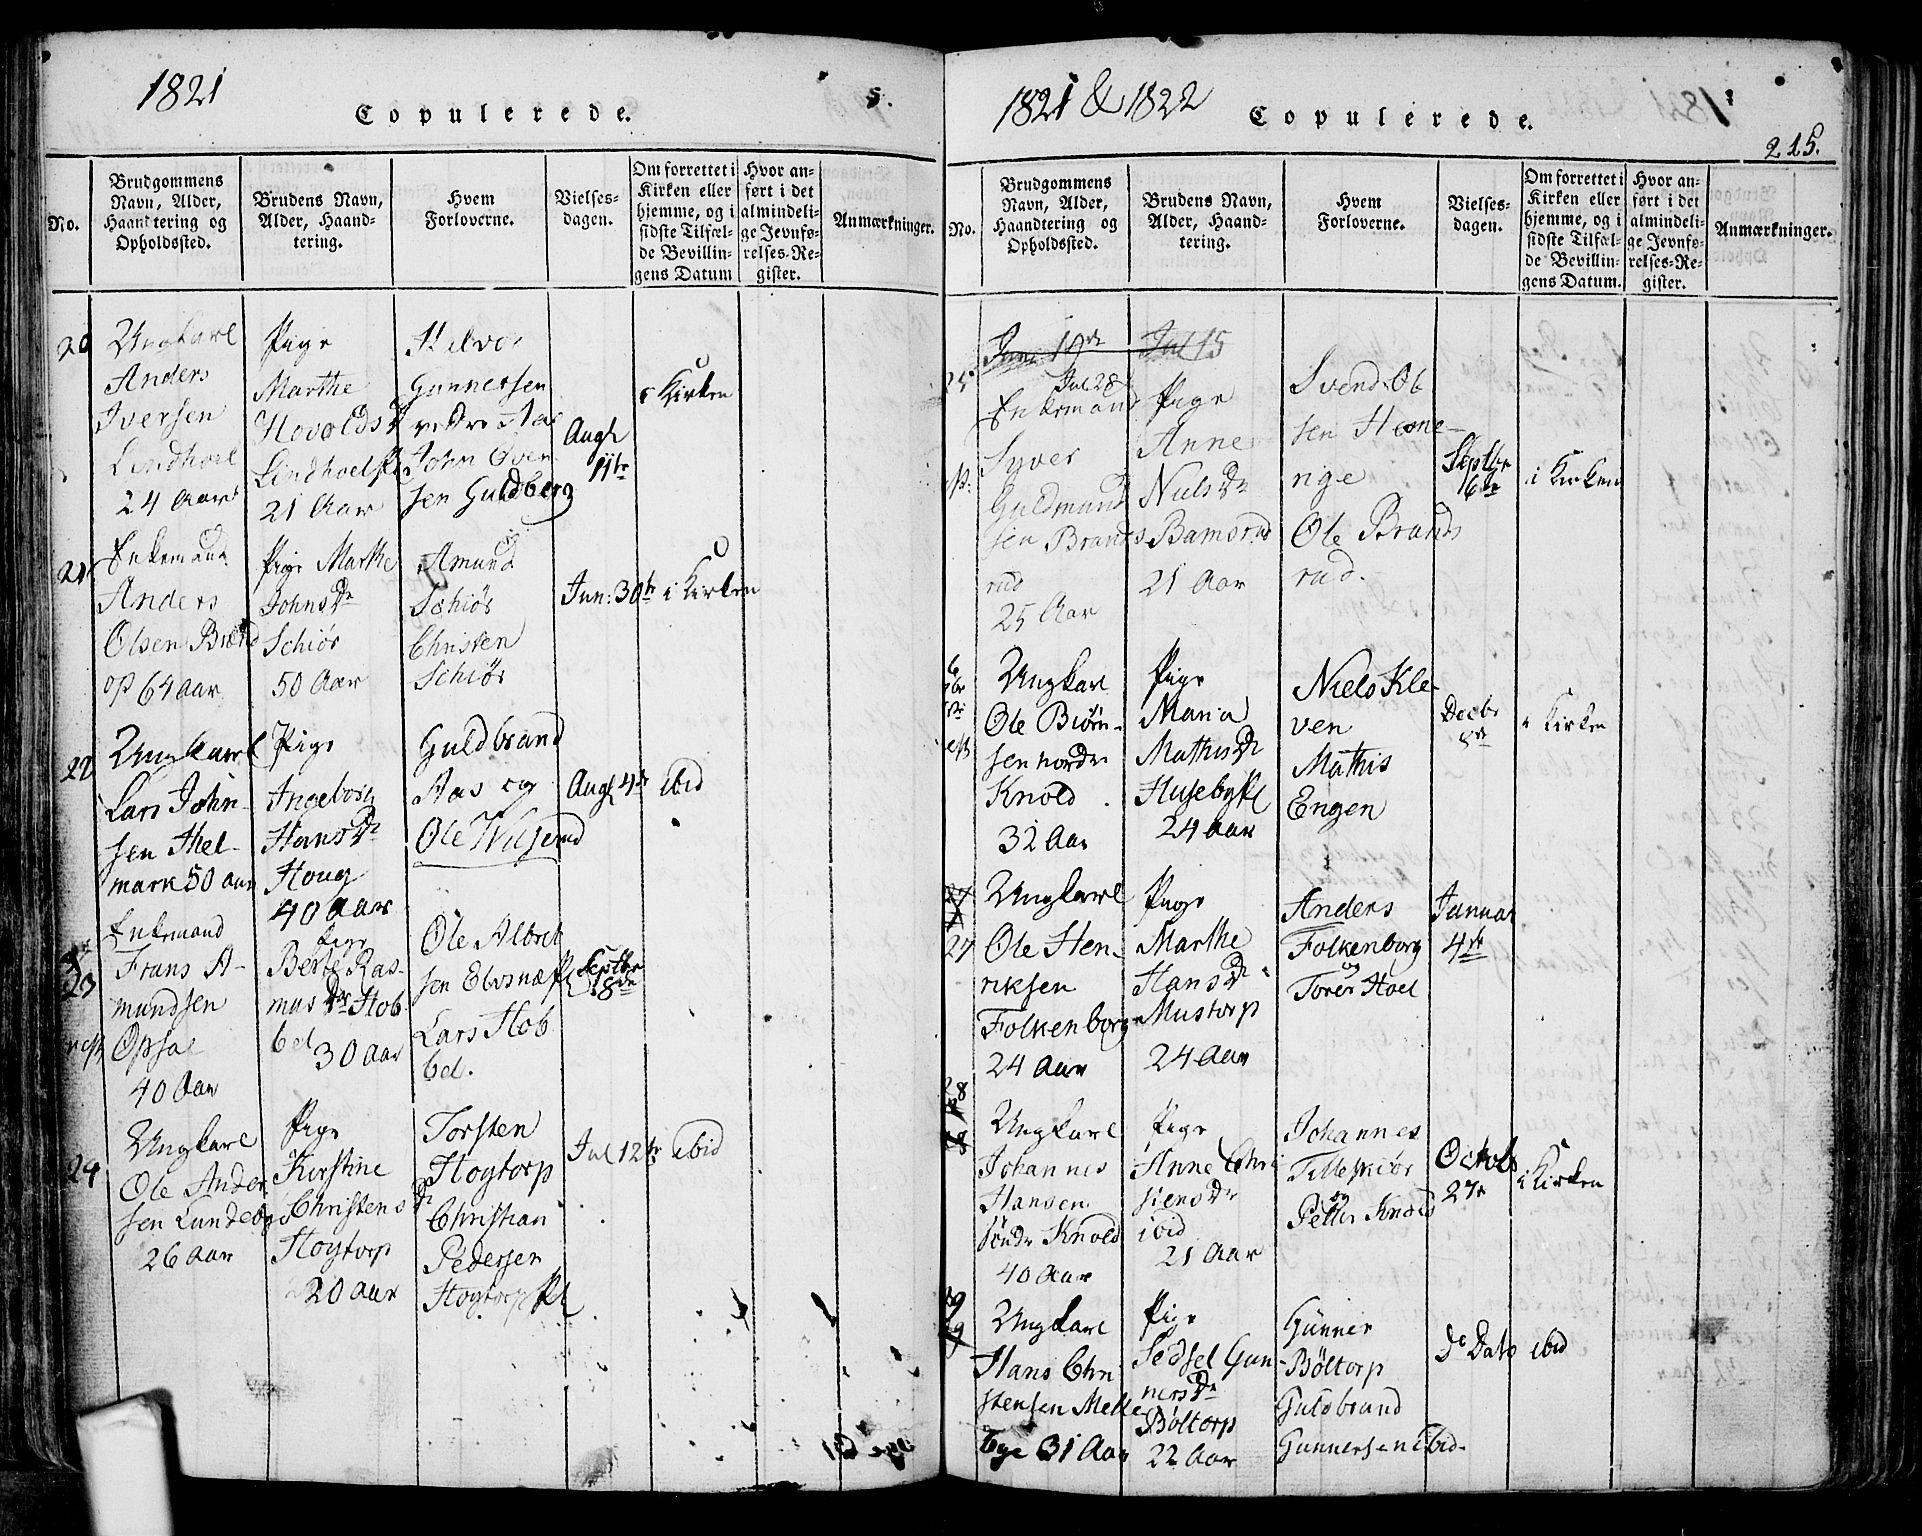 1821
Copulerede.
5.
No.
Brudgommens
Navn, Alder,
Haandtering og
Opholdssted.
Brudens Navn,
Alder, Haand-
tering.
Hvem
Forloverne.
Vielses-
dagen.
Om forrettet i
Kirken eller
hjemme, og i
sidste Tilfæl-
de Bevillin-
gens Datum
Hvor an-
ført i det
almindeli-
ge Jevnfø-
relses-Re-
gister.
Anmærkninger.
20
Ungkarl
Anders
Iversen
Lindhoel
24 Aar
Pige
Marthe
Hovolds Dr
Lindhoel
21 Aar
Halvor
Gunnersen
nedre Aas
John Even
sen Guldberg
Augl
11te
i Kirken
21
Enkemand
Anders
Olsen
64 Aar
Pige Marthe
Johns Dr
Schiør
50 Aar
Amund
Schiør
Christen
Schiør
Jun: 30te
i Kirken
22
Ungkarl
Lars John-
sen Thel-
mark 50 aar
Pige
Ingeborg
Hans Dr
Houg
40 Aar
Guldbrand
Aas og
Ole
Augl 4de
ibid
23
Enkemand
Frans A-
mundsen
Opsal
40 Aar
Pige
Berte Ras-
mus Dr Hob
bel 30 Aar
Ole Albret
sen
Lars Hob
bel.
Septbr
18de
24
Ungkarl
Ole Ander
sen Lundeby
26 Aar
Pige
Kirstine
Christens Dr
Hoytorp
20 Aar
Torsten
Hoytorp
Christian
Pedersen
Hoytorp Pl
Jul 12te
ibid
1821 & 1822
Copulerede.
215.
No.
Brudgommens
Navn, Alder,
Haandtering og
Opholdssted.
Brudens Navn,
Alder, Haand-
tering.
Hvem
Forloverne.
Vielses-
dagen.
Om forrettet i
Kirken eller
hjemme, og i
sidste Tilfæl-
de Bevillin-
gens Datum.
Hvor an-
ført i det
almindeli-
ge Jevnfø-
relses-Re-
gister.
Anmærkninger.
Jul 15
25
Jul 28
Enkemand
Syver
Guldmund
sen Brands
rud
25 Aar
Pige
Anne
Niels Dr
Bamsrud
21 Aar
Svend Ol
sen Hone-
rige
Ole Brands
rud.
Septbr
6te
i Kirken
Ungkarl
Ole Biørn-
sen nordre
Knold
32 Aar
Pige
Maria
Mathis Dr
Huseby Pl
24 Aar
Niels Kle-
ven
Mathis
Engen
Decbr
i Kirken
27
Ungkarl
Ole Hen-
riksen
Folkenborg
24 Aar
Pige
Marthe
Hans Dr
Mustorp
24 Aar
Anders
Folkenborg
og
Torer Hoel
Januar
4de
28
Ungkarl
Johannes
Hansen
søndr Knold
40 Aar
Pige
Anne Chri
stens Dr
ibid
21 Aar
Johannes
Tilleskiør
og
Petter
Octob
27
i Kirken
Ungkarl
Hans Chri
stensen Melle
bye 31 Aar
Pige
Sedsel Gun-
ners Dr
Bøltorp
22 Aar
Gunner
Bøltorp
Guldbrand
Gunnersen ibid.
do Dato
ibid